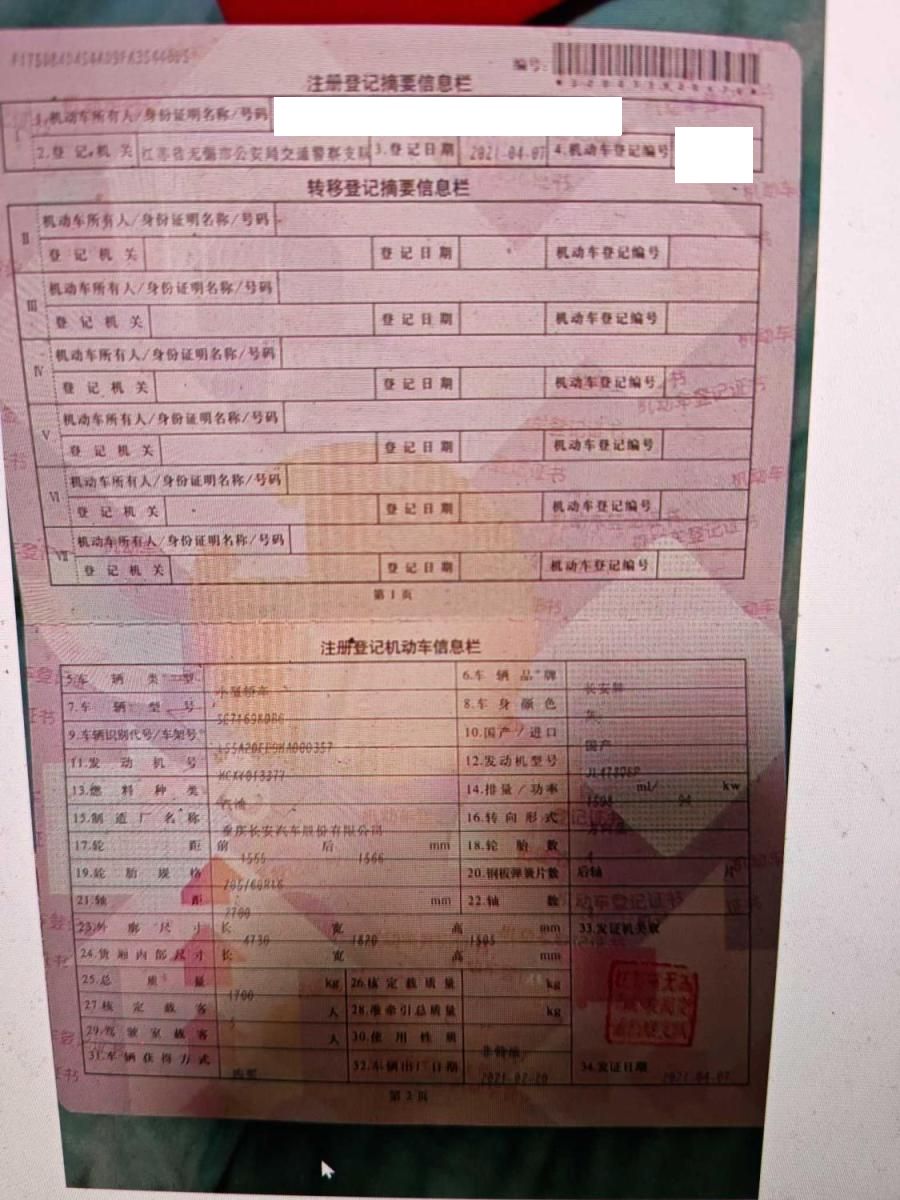 编号:
注册登记摘要信息栏
I 1.机动车所有人/身份证明名称/号码
2.登记机关 江苏省无锡市公安局交通警察支队 3.登记日期 2021-04-07 4.机动车登记编号
转移登记摘要信息栏
II 机动车所有人/身份证明名称/号码
登记机关 登记日期 机动车登记编号
III 机动车所有人/身份证明名称/号码
登记机关 登记日期 机动车登记编号
IV 机动车所有人/身份证明名称/号码
登记机关 登记日期 机动车登记编号
V 机动车所有人/身份证明名称/号码
登记机关 登记日期 机动车登记编号
VI 机动车所有人/身份证明名称/号码
登记机关 登记日期 机动车登记编号
VII 机动车所有人/身份证明名称/号码
登记机关 登记日期 机动车登记编号
第1页
注册登记机动车信息栏
5.车辆类型 小型轿车 6.车辆品牌 长安牌
7.车辆型号 8.车身颜色 灰
9.车辆识别代号/车架号 10.国产/进口 国产
11.发动机号 12.发动机型号
13.燃料种类 汽油 14.排量/功率 ml/ kw
15.制造厂名称 重庆长安汽车股份有限公司 16.转向形式
17.轮距 前 1555 后 1566 mm 18.轮胎数 4
19.轮胎规格 205/60R16 20.钢板弹簧片数 后轴 片
21.轴距 2700 mm 22.轴数
23.外廓尺寸 长 4730 宽 1820 高 1505 mm 33.发证机关章
24.货厢内部尺寸 长 宽 高 mm
25.总质量 1700 kg 26.核定载质量 kg
27.核定载客 人 28.准牵引总质量 kg
29.驾驶室载客 人 30.使用性质 非营运
31.车辆获得方式 购买 32.车辆出厂日期 34.发证日期 2021-04-07
第2页